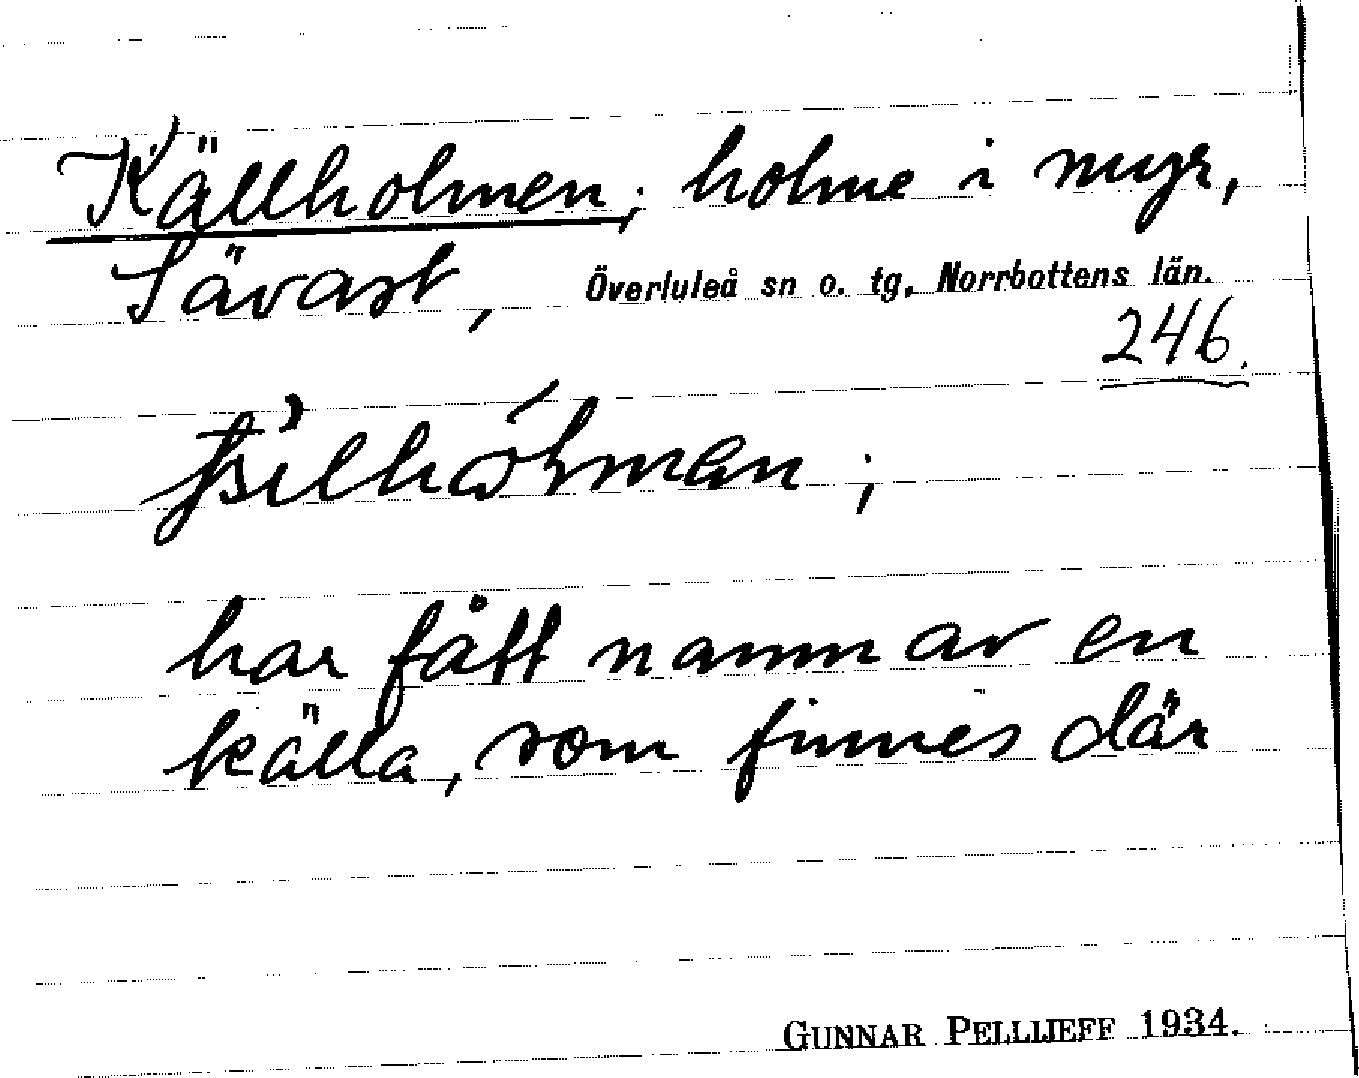 Källholmen; holme i myr,
Sävast, Överluleå sn o. tg, Norrbottens län.
246.
har fått namn av en
källa, som finnes där
GUNNAR PELLIJEFF 1934.